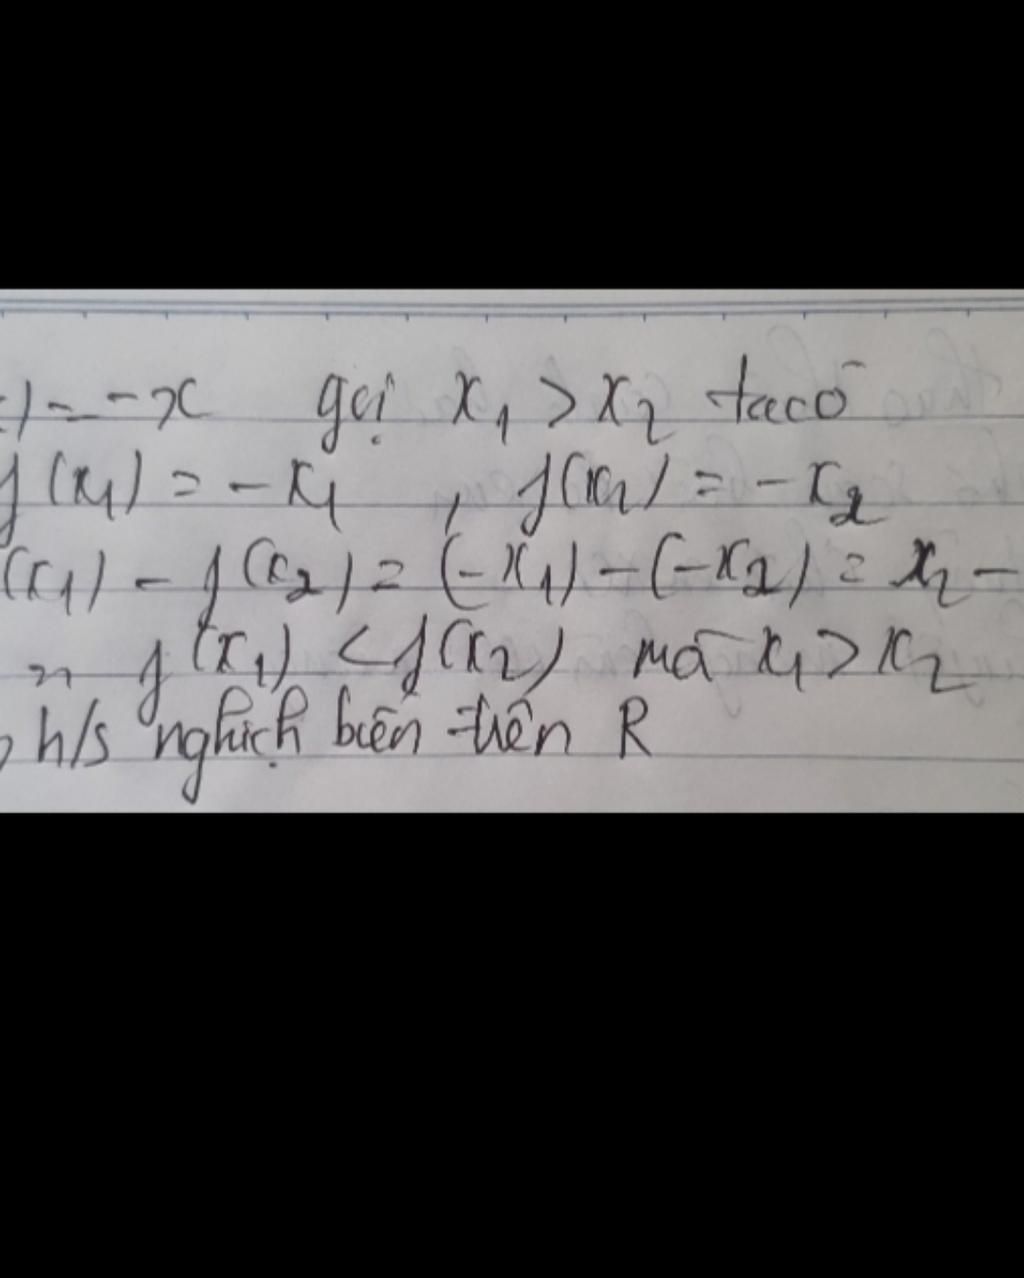 ) = -x gọi x₁ > x₂ ta có
f(x₁) = -x₁ , f(x₂) = -x₂
(x₁) - f(x₂) = (-x₁) - (-x₂) = x₂ -
f(x₁) < f(x₂) mà x₁ > x₂
h/s nghịch biến trên R